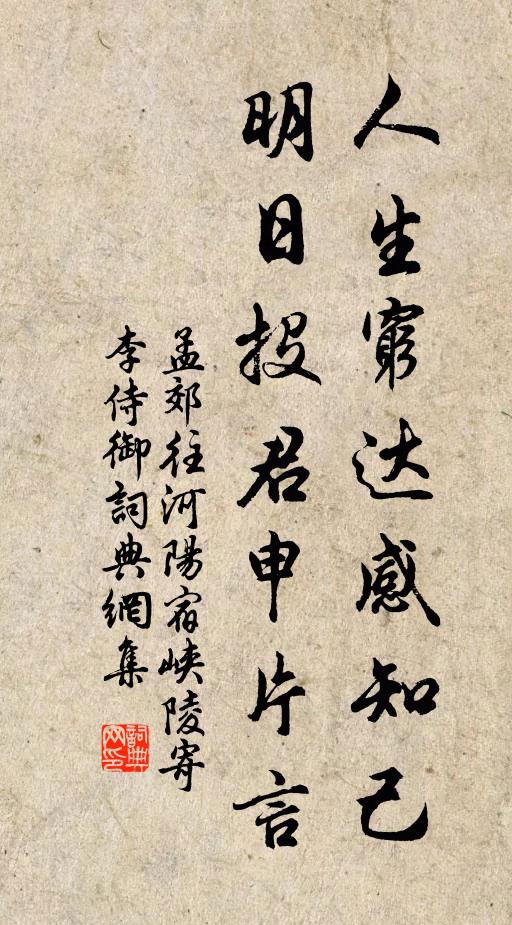 人生窮达感知己
明日投君申片言
孟郊往河陽宿峡陵寄
李侍御詞典網集
詞典
网印